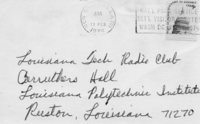 AM
Louisiana Tech Radio Club
Carruthers Hall
Louisiana Polytechnic Institute
Ruston, Louisiana 71270